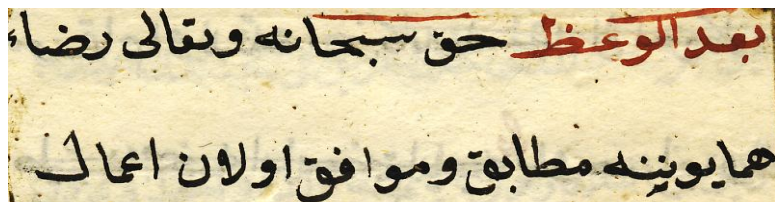 بعد الوعظ حق سبحانه وتعالى رضاء
همايوننه مطابق وموافق اولان اعمال